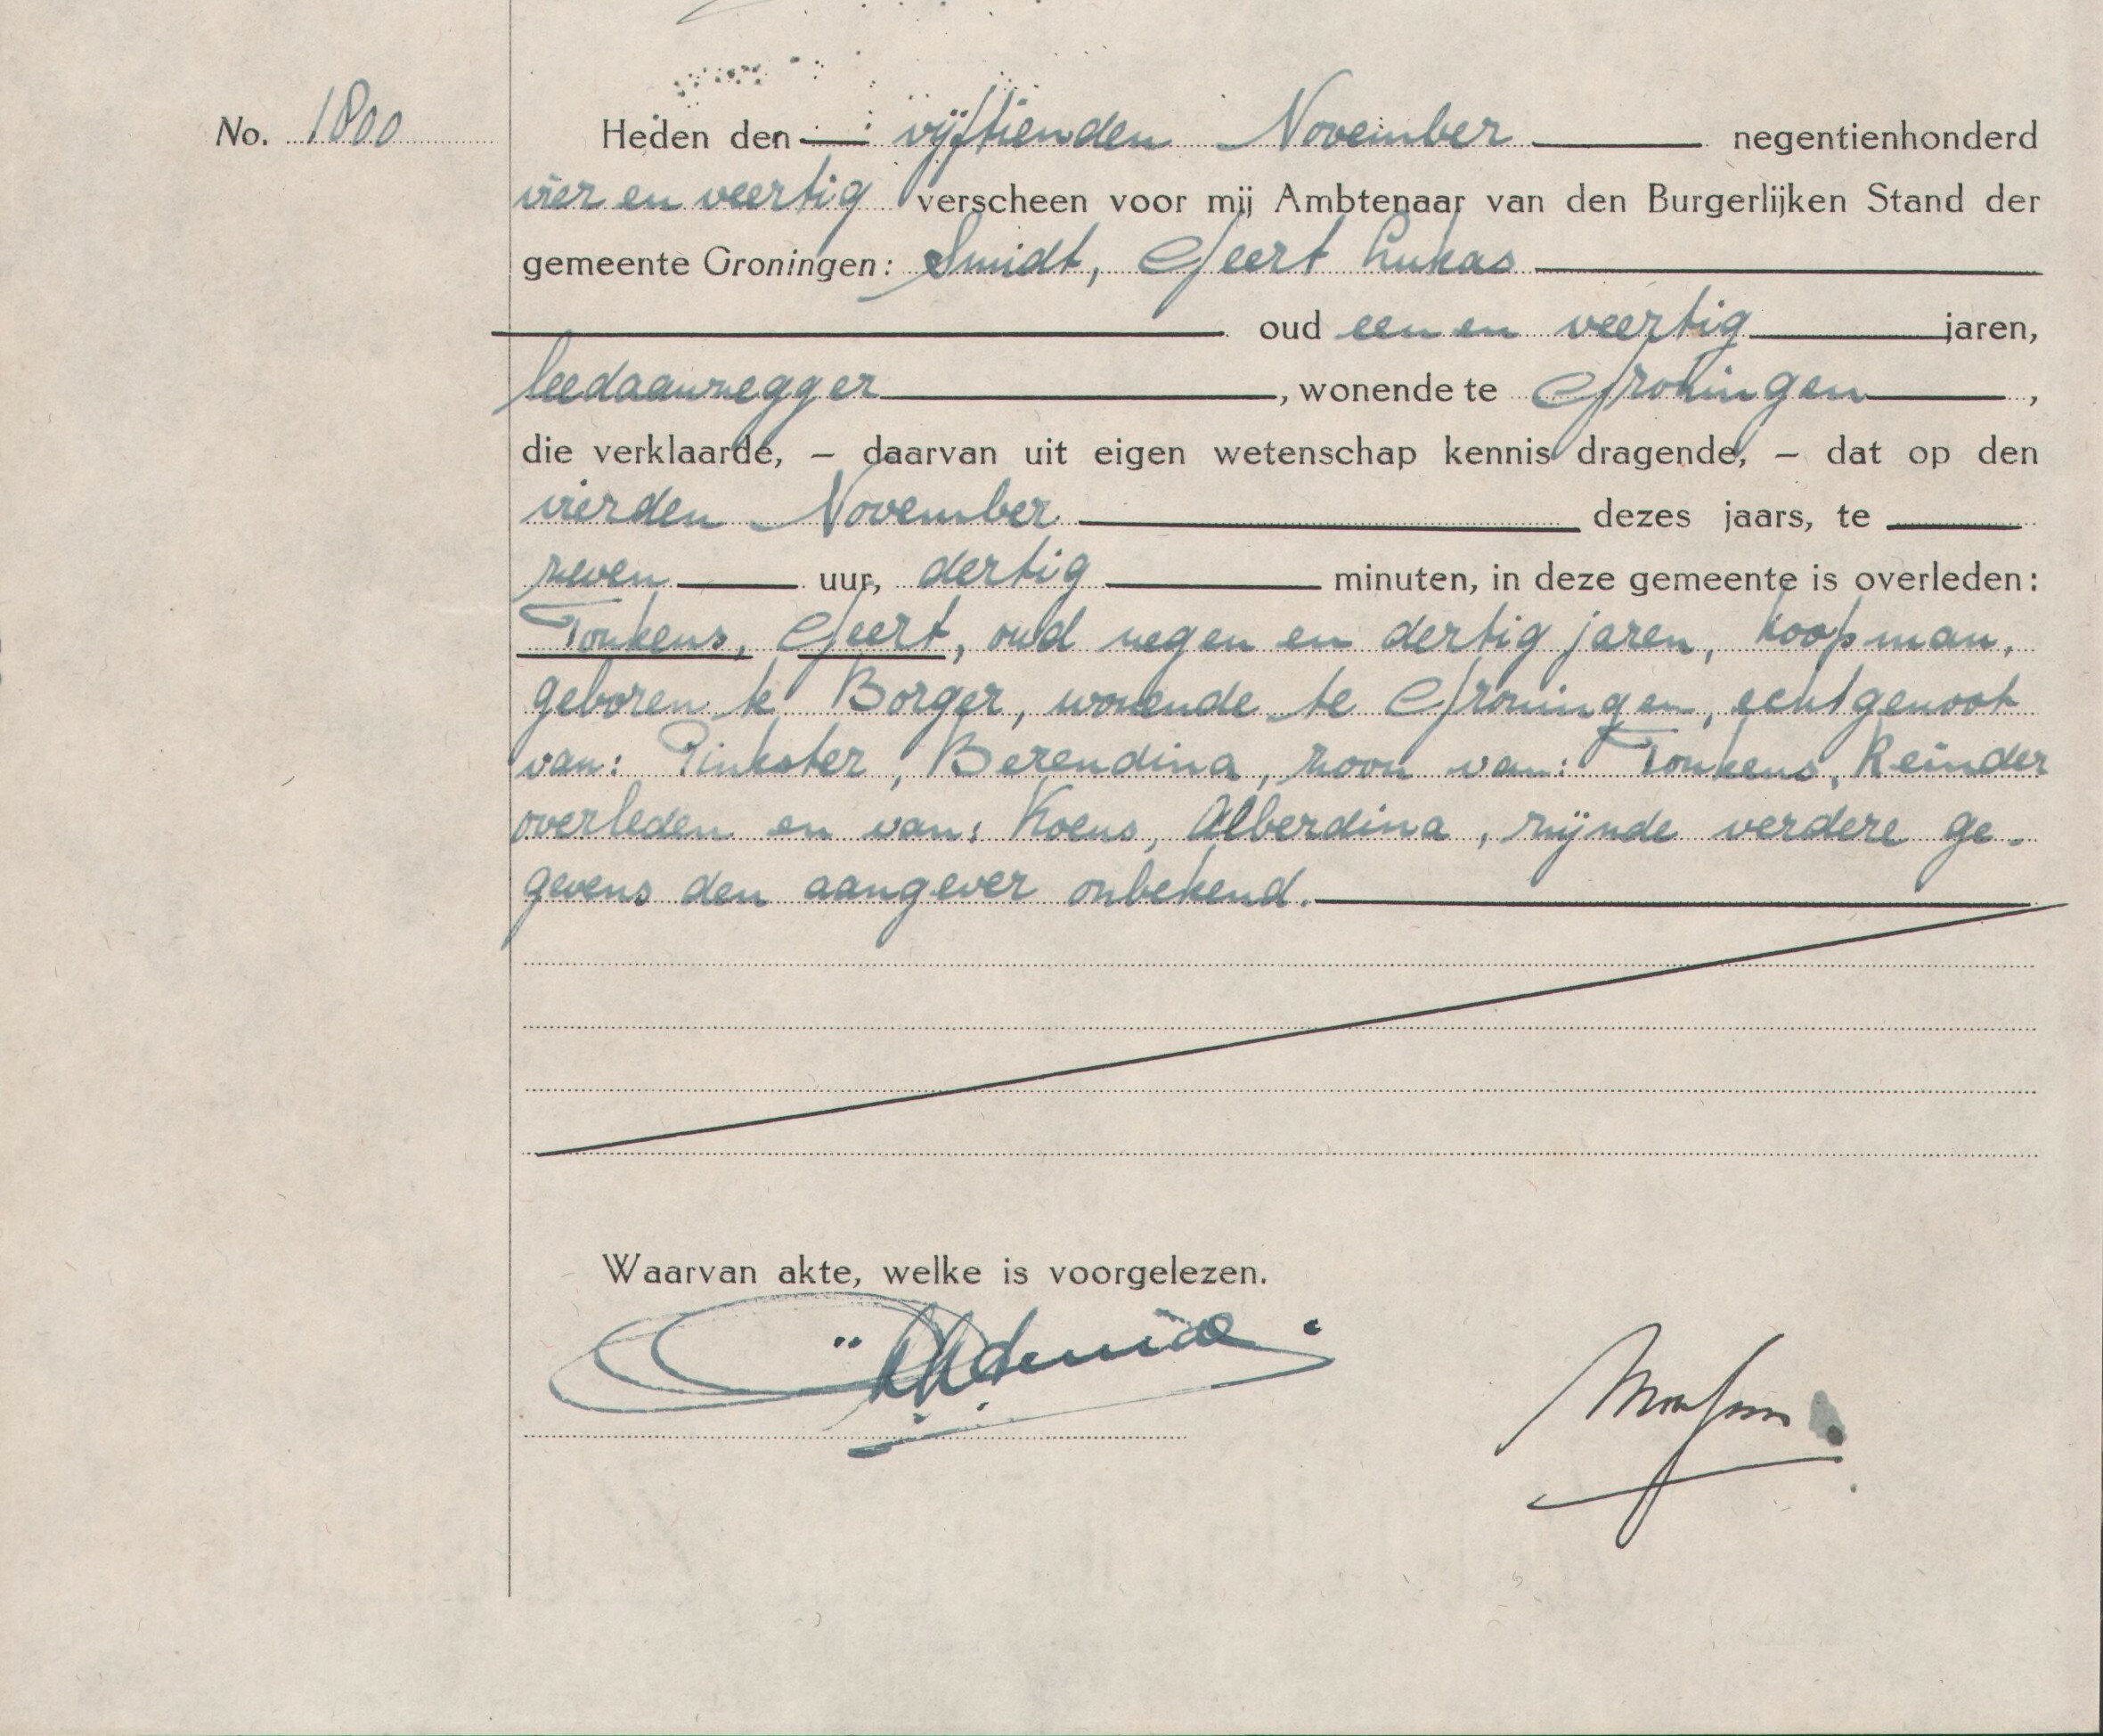 No. 1800
Heden den vijftienden November negentienhonderd
vier en veertig verscheen voor mij Ambtenaar van den Burgerlijken Stand der
gemeente Groningen: Smidt, Geert Lukas
oud een en veertig jaren,
leedaanzegger, wonende te Groningen,
die verklaarde, – daarvan uit eigen wetenschap kennis dragende, – dat op den
vierden November dezes jaars, te
zeven uur, dertig minuten, in deze gemeente is overleden:
Tonkens, Geert, oud negen en dertig jaren, koopman,
geboren te Borger, wonende te Groningen, echtgenoot
van: Pinkster, Berendina, zoon van: Tonkens, Reinder
overleden en van: Koens, Alberdina, zijnde verdere ge-
gevens den aangever onbekend.
Waarvan akte, welke is voorgelezen.